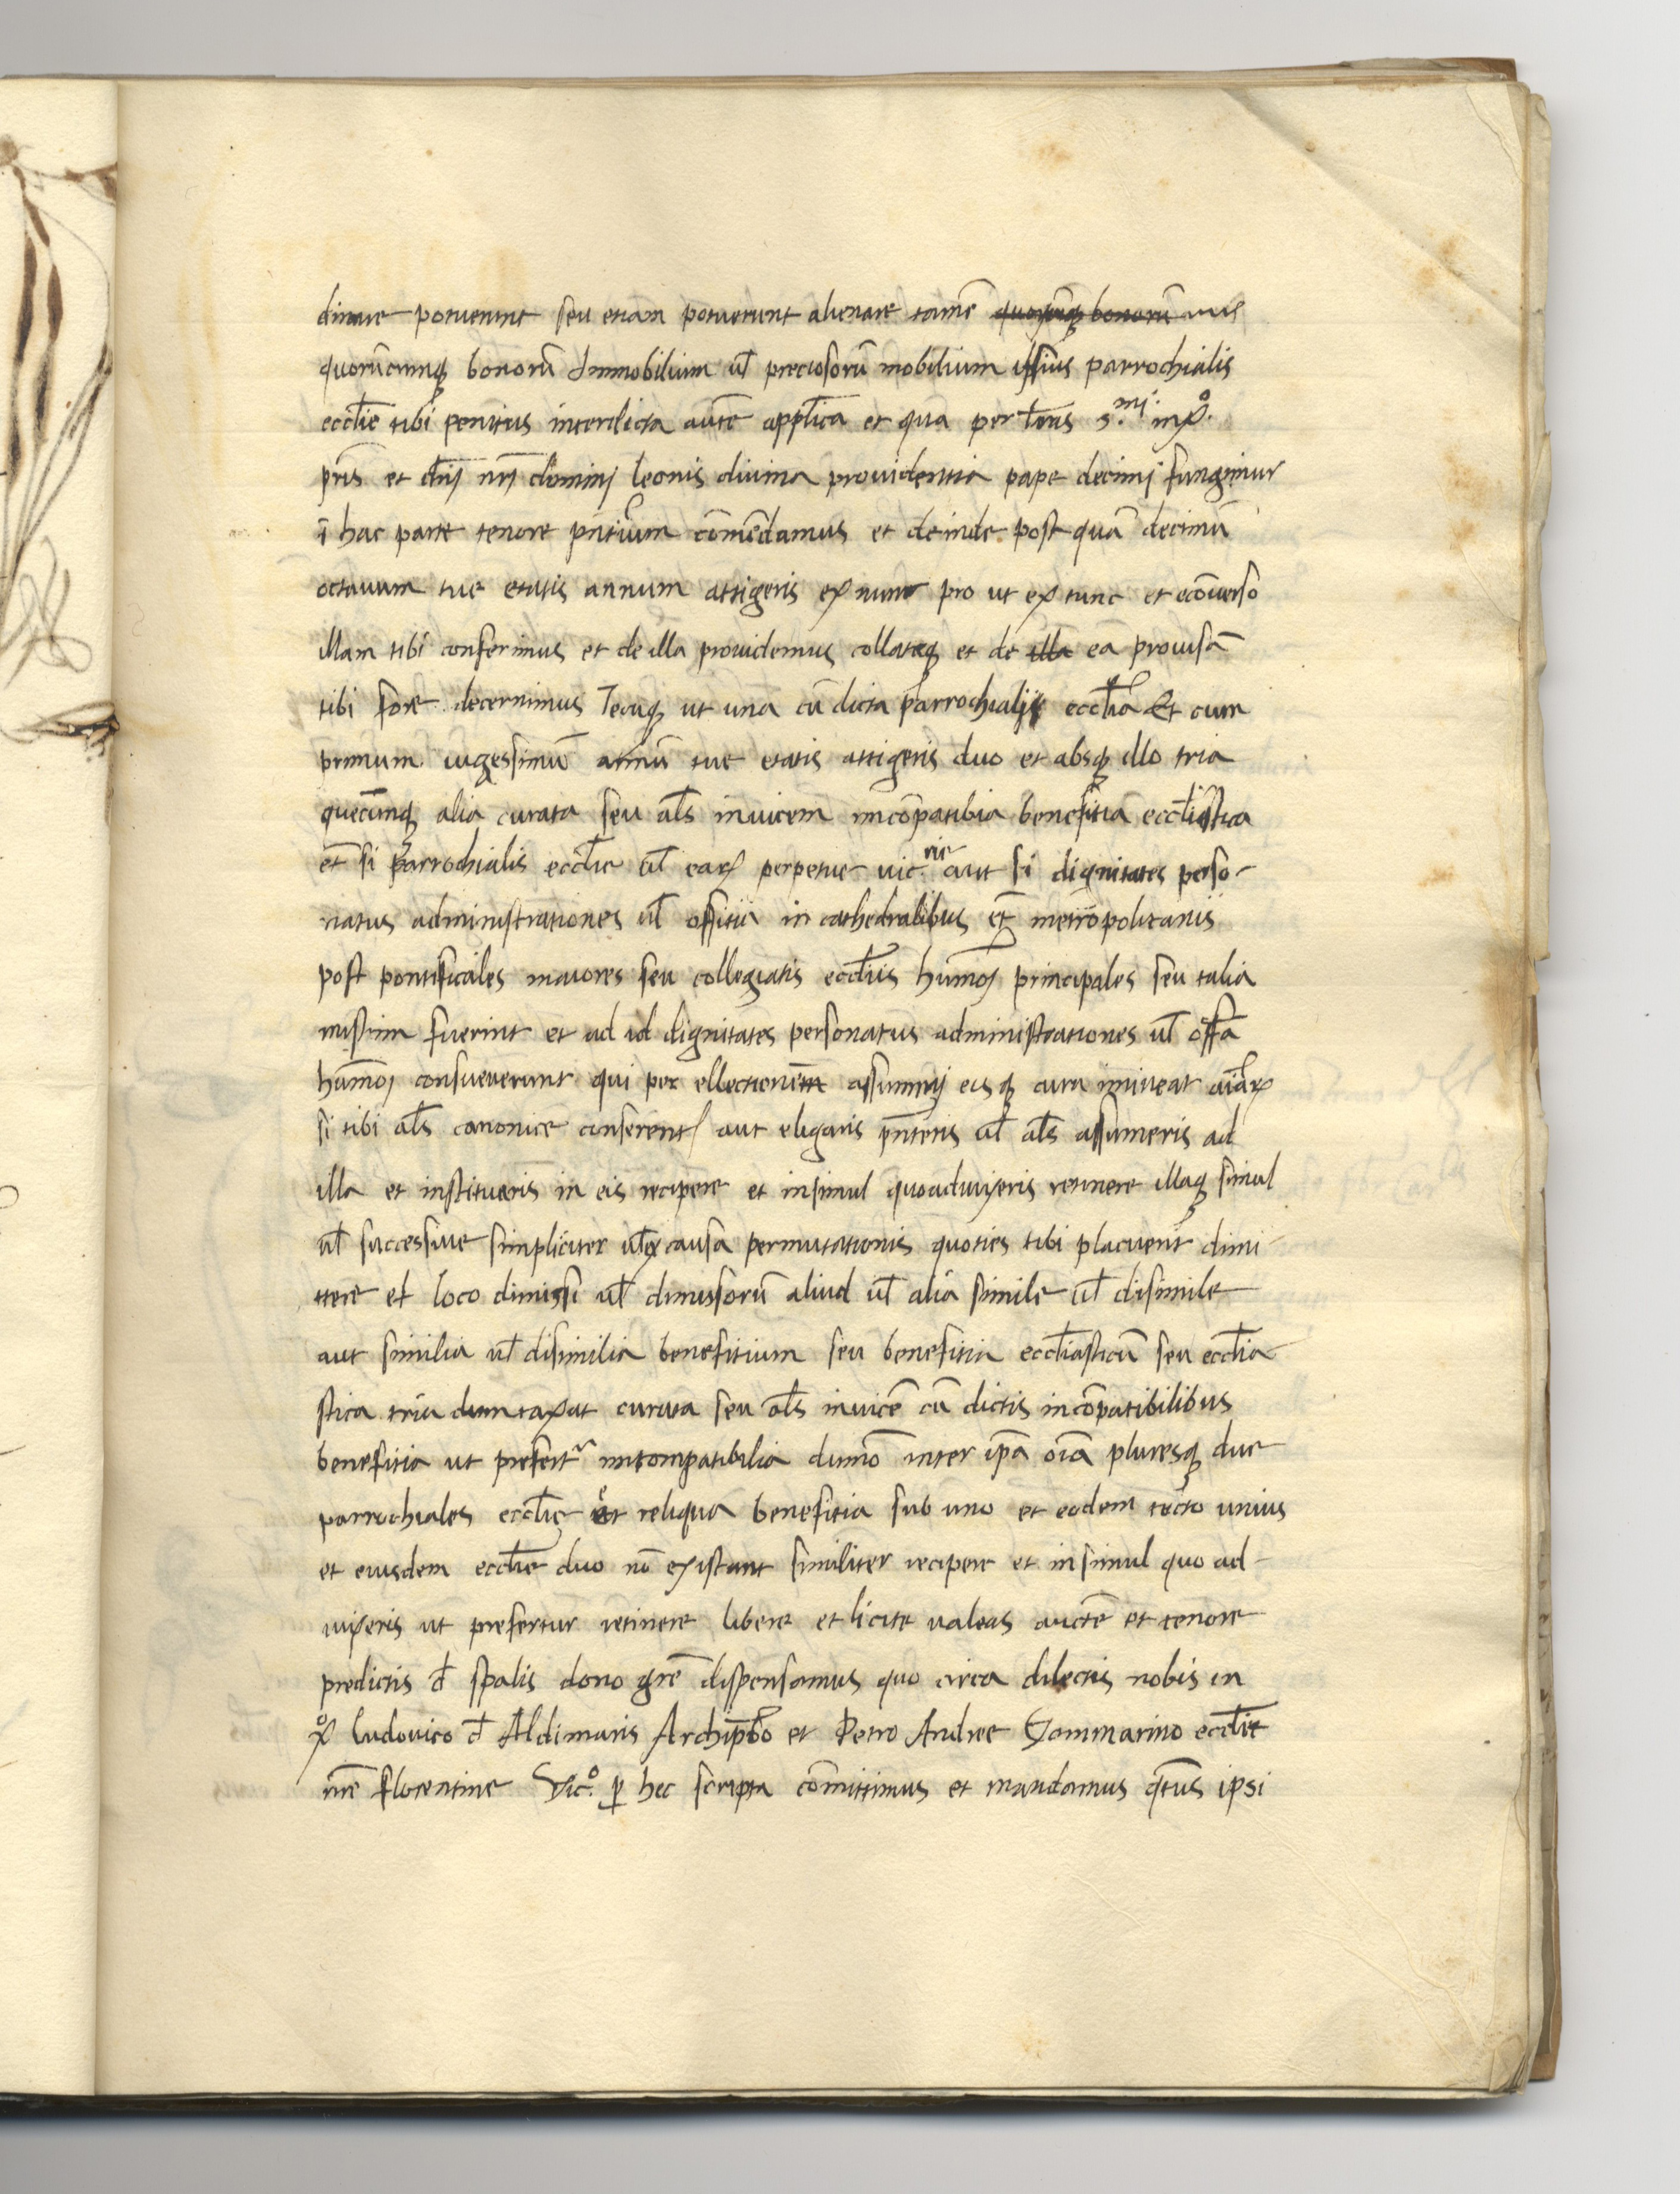 dinare potuerunt seu etiam potuerunt alienare tamē quorūcunq bonorū
quorūcunq bonorū Immobilium ul preciosorū mobilium ipsius parrochialis
ecclie tibi penitus interdicta aucte applica et qua per lras s.mi in xo.
pris et dnj nrj dominj leonis diuina prouidentia pape decimj fungimur
ī hac parte tenore pntium cōmēdamus et deinde post quā decimū
octauum tue etatis annum attigeris ex nunc pro ut ex tunc et ecōuerso
illam tibi conferimus et de illa prouidemus collataq et de illa ea prouisā
tibi fore decernimus Tecuq ut una cū dicta parrochialj ecclia Et cum
primum uigessimū annū tue etatis attigeris duo et absq illo tria
quecūnq alia curata seu als inuicem incōpatibia benefitia eccliastica
et si parrochialis ecclie ul earx perpetue uic.rie aut si dignitates perso-
natus administrationes ul offitia in cathedralibus et metropolitanis
post pontificales maiores seu collegiatis eccliis humōj principales seu talia
mistim fuerint et ad id dignitates personatus administrationes ul offa
humōj consueuerunt qui per ellectionem assummj eisq cura imineat aiarx
si tibi als canonice conferent aut eligaris pnteris ul als assumeris ad
illa et instituaris in eis recipere et insimul quoaduixeris retinere illaq simul
ul successiue simpliciter ul ex causa permutationis quoties tibi placuerit dimi-
ttere et loco dimissi ul dimissorū aliud ul alia simile ul disimile
aut similia ul disimilia benefitium seu benefitia eccliasticū seu ecclia-
stica tria dumtaxat curata seu als inuicē cū dictis incōpatibilibus
benefitia ut prefert incompatibilia dumō inter ipā oīa pluresq due
parrochiales ecclie et reliqua benefitia sub uno et eodem tecto unius
et eiusdem ecclie duo nō existant similiter recipere et insimul quo ad-
uixeris ut prefertur retinere libere et licite ualeas aucte et tenore
predictis d spalis dono gre dispensamus quo circa dilectis nobis in
xo ludovico d Aldimaris Archipbro et Petro Andree Gammarino ecclie
nre florentine Vic.o p hec scripta cōmittimus et mandamus qtus ipsi